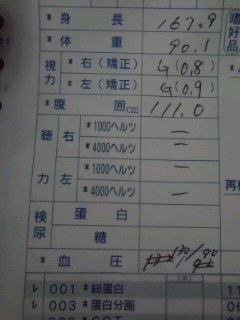 * 身長 167.9
* 体重 90.1
視力 * 右(矯正) G(0.8)
* 左(矯正) G(0.9)
* 腹囲cm 111.0
聴力 右 * 1000ヘルツ —
* 4000ヘルツ —
左 * 1000ヘルツ —
* 4000ヘルツ —
検尿 蛋白
糖
* 血圧 130/90
レ 001 * 総蛋白
レ 003 * 蛋白分画